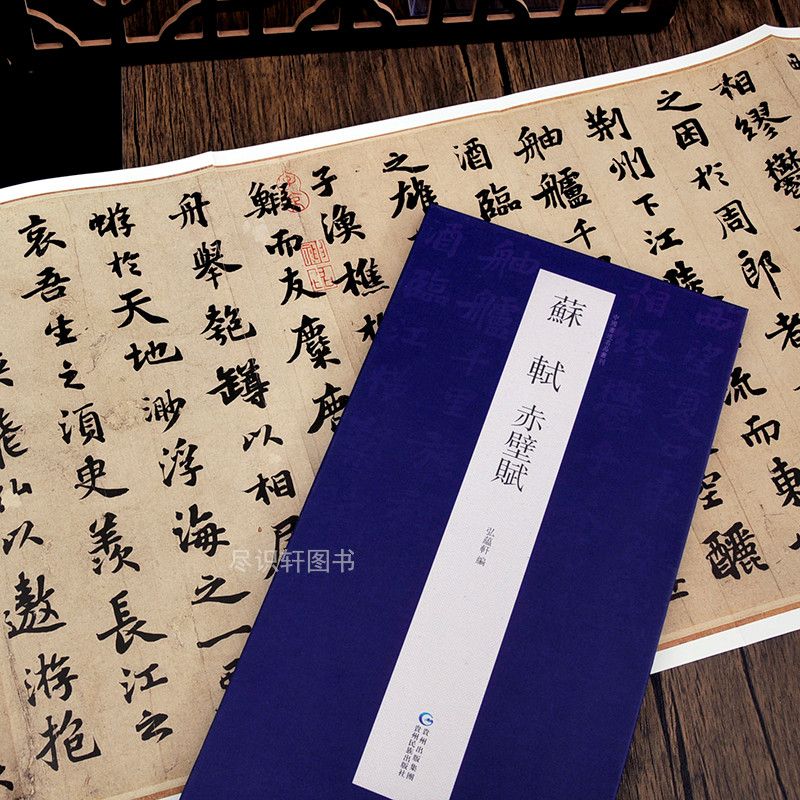 相繆鬱
之困於周郎者
荊州下江陵
流而東
舳艫千
空釃
酒臨
之雄
子漁樵於
鰕而友麋
舟舉匏罇以相
蝣於天地渺浮海之一
哀吾生之須臾羨長江之
仙以遨游抱
蘇軾 赤壁賦
弘蘊軒 編
貴州出版集團
貴州民族出版社
尽识轩图书